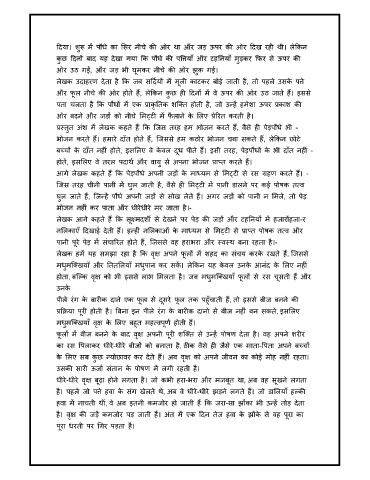 दिया। शुरू में पौधे का सिर नीचे की ओर था और जड़ ऊपर की ओर दिख रही थी। लेकिन
कुछ दिनों बाद यह देखा गया कि पौधे की पत्तियाँ और टहनियाँ मुड़कर फिर से ऊपर की
ओर उठ गईं, और जड़ भी घूमकर नीचे की ओर झुक गई।
लेखक उदाहरण देता है कि जब सर्दियों में मूली काटकर बोई जाती है, तो पहले उसके पत्ते
और फूल नीचे की ओर होते हैं, लेकिन कुछ ही दिनों में वे ऊपर की ओर उठ जाते हैं। इससे
पता चलता है कि पौधों में एक प्राकृतिक शक्ति होती है, जो उन्हें हमेशा ऊपर प्रकाश की
ओर बढ़ने और जड़ों को नीचे मिट्टी में फैलाने के लिए प्रेरित करती है।
प्रस्तुत अंश में लेखक कहते हैं कि जिस तरह हम भोजन करते हैं, वैसे ही पेड़पौधे भी -
भोजन करते हैं। हमारे दाँत होते हैं, जिससे हम कठोर भोजन चबा सकते हैं, लेकिन छोटे
बच्चों के दाँत नहीं होते, इसलिए वे केवल दूध पीते हैं। इसी तरह, पेड़पौधों के भी दाँत नहीं -
होते, इसलिए वे तरल पदार्थ और वायु से अपना भोजन प्राप्त करते हैं।
आगे लेखक कहते हैं कि पेड़पौधे अपनी जड़ों के माध्यम से मिट्टी से रस ग्रहण करते हैं। -
जिस तरह चीनी पानी में घुल जाती है, वैसे ही मिट्टी में पानी डालने पर कई पोषक तत्व
घुल जाते हैं, जिन्हें पौधे अपनी जड़ों से सोख लेते हैं। अगर जड़ों को पानी न मिले, तो पेड़
भोजन नहीं कर पाता और धीरेधीरे मर जाता है।-
लेखक आगे कहते हैं कि सूक्ष्मदर्शी से देखने पर पेड़ की जड़ों और टहनियों में हजारोंहजार
नलिकाएँ दिखाई देती हैं। इन्हीं नलिकाओं के माध्यम से मिट्टी से प्राप्त पोषक तत्व और
पानी पूरे पेड़ में संचारित होते हैं, जिससे वह हराभरा और स्वस्थ बना रहता है।-
लेखक हमें यह समझा रहा है कि वृक्ष अपने फूलों में शहद का संचय करके रखते हैं, जिससे
मधुमक्खियाँ और तितलियाँ मधुपान कर सकें। लेकिन यह केवल उनके आनंद के लिए नहीं
होता, बल्कि वृक्ष को भी इससे लाभ मिलता है। जब मधुमक्खियाँ फूलों से रस चूसती हैं और
उनके
पीले रंग के बारीक दाने एक फूल से दूसरे फूल तक पहुँचाती हैं, तो इससे बीज बनने की
प्रक्रिया पूरी होती है। बिना इन पीले रंग के बारीक दानों से बीज नहीं बन सकते, इसलिए
मधुमक्खियाँ वृक्ष के लिए बहुत महत्वपूर्ण होती हैं।
फूलों में बीज बनने के बाद वृक्ष अपनी पूरी शक्ति से उन्हें पोषण देता है। वह अपने शरीर
का रस पिलाकर धीरे-धीरे बीजों को बनाता है, ठीक वैसे ही जैसे एक माता-पिता अपने बच्चों
के लिए सब कुछ न्योछावर कर देते हैं। अब वृक्ष को अपने जीवन का कोई मोह नहीं रहता।
उसकी सारी ऊर्जा संतान के पोषण में लगी रहती है।
धीरे-धीरे वृक्ष बूढ़ा होने लगता है। जो कभी हरा-भरा और मजबूत था, अब वह सूखने लगता
है। पहले जो पत्ते हवा के संग खेलते थे, अब वे धीरे-धीरे झड़ने लगते हैं। जो डालियाँ हल्की
हवा में नाचती थीं, वे अब इतनी कमजोर हो जाती हैं कि जरा-सा झोंका भी उन्हें तोड़ देता
है। वृक्ष की जड़ें कमजोर पड़ जाती हैं। अंत में एक दिन तेज हवा के झोंके से वह पूरा का
पूरा धरती पर गिर पड़ता है।